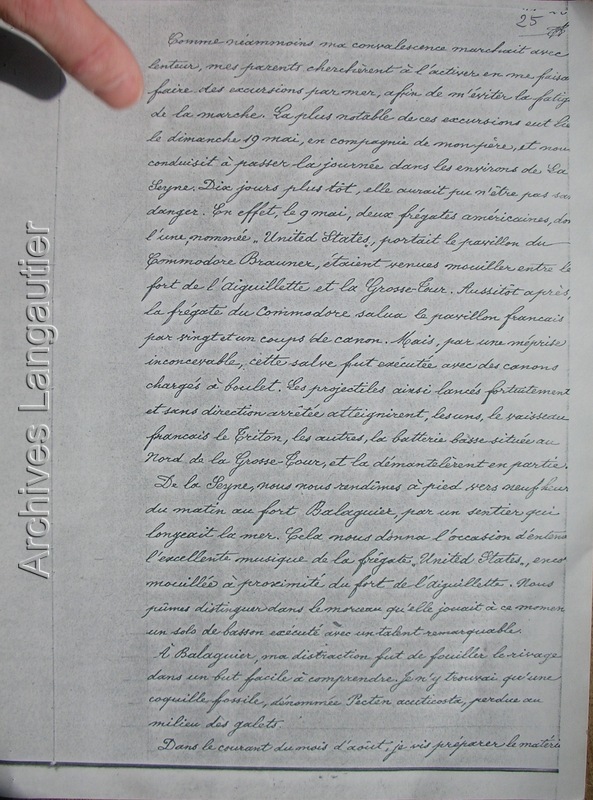 25
Comme néammoins ma convalescence marchait avec
lenteur, mes parents cherchèrent à l'activer en me faisa
faire des excursions par mer, afin de m'éviter la fatig
de la marche. La plus notable de ces excursions eut lie
le dimanche 19 mai, en compagnie de mon père, et nous
conduisit à passer la journée dans les environs de La
Seyne. Dix jours plus tôt, elle aurait pu n'être pas sa
danger. En effet, le 9 mai, deux frégates américaines, do
l'une, nommée „United States„, portait le pavillon du
Commodore Brauner, étaient venues mouiller entre le
fort de l'aiguillette et la Grosse-Tour. Aussitôt après,
la frégate du Commodore salua le pavillon francais
par vingt et un coups de canon. Mais, par une méprise
inconcevable, cette salve fut exécutée avec des canons
chargés à boulet. Les projectiles ainsi lancés fortuitement
et sans direction arrêtée atteignirent, les uns, le vaisseau
francais le Triton, les autres, la batterie basse située au
Nord de la Grosse-Tour, et la démantelèrent en partie.
De la Seyne, nous nous rendîmes à pied vers neuf heur
du matin au fort Balaguier, par un sentier qui
longeait la mer. Cela nous donna l'occasion d'enten
l'excellente musique de la frégate „United States„, enco
mouillée à proximité du fort de l'aiguillette. Nous
pûmes distinguer dans le morceau qu'elle jouait à ce momen
un solo de basson exécuté avec un talent remarquable.
À Balaguier, ma distraction fut de fouiller le rivage
dans un but facile à comprendre. Je n'y trouvai qu'une
coquille fossile, dénommée Pecten acuticosta, perdue au
milieu des galets.
Dans le courant du mois d'août, je vis préparer le matéri
Archives Langautier